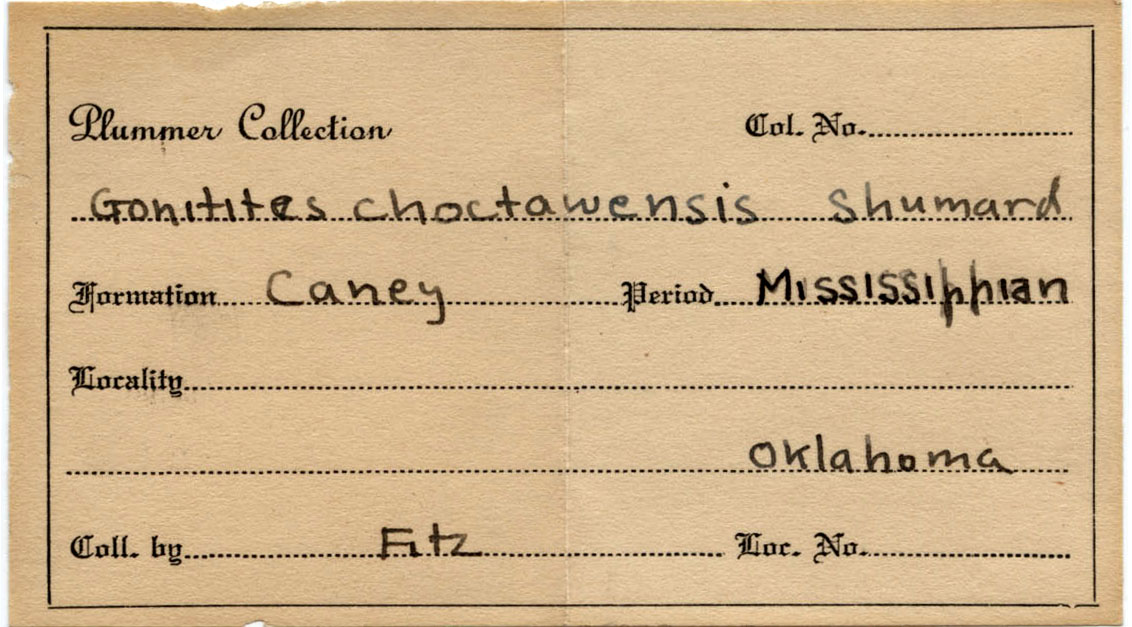 Plummer Collection Col. No.
Gonitites choctawensis Shumard
Formation Caney Period Mississippian
Locality
Oklahoma
Coll. by Fitz Loc. No.